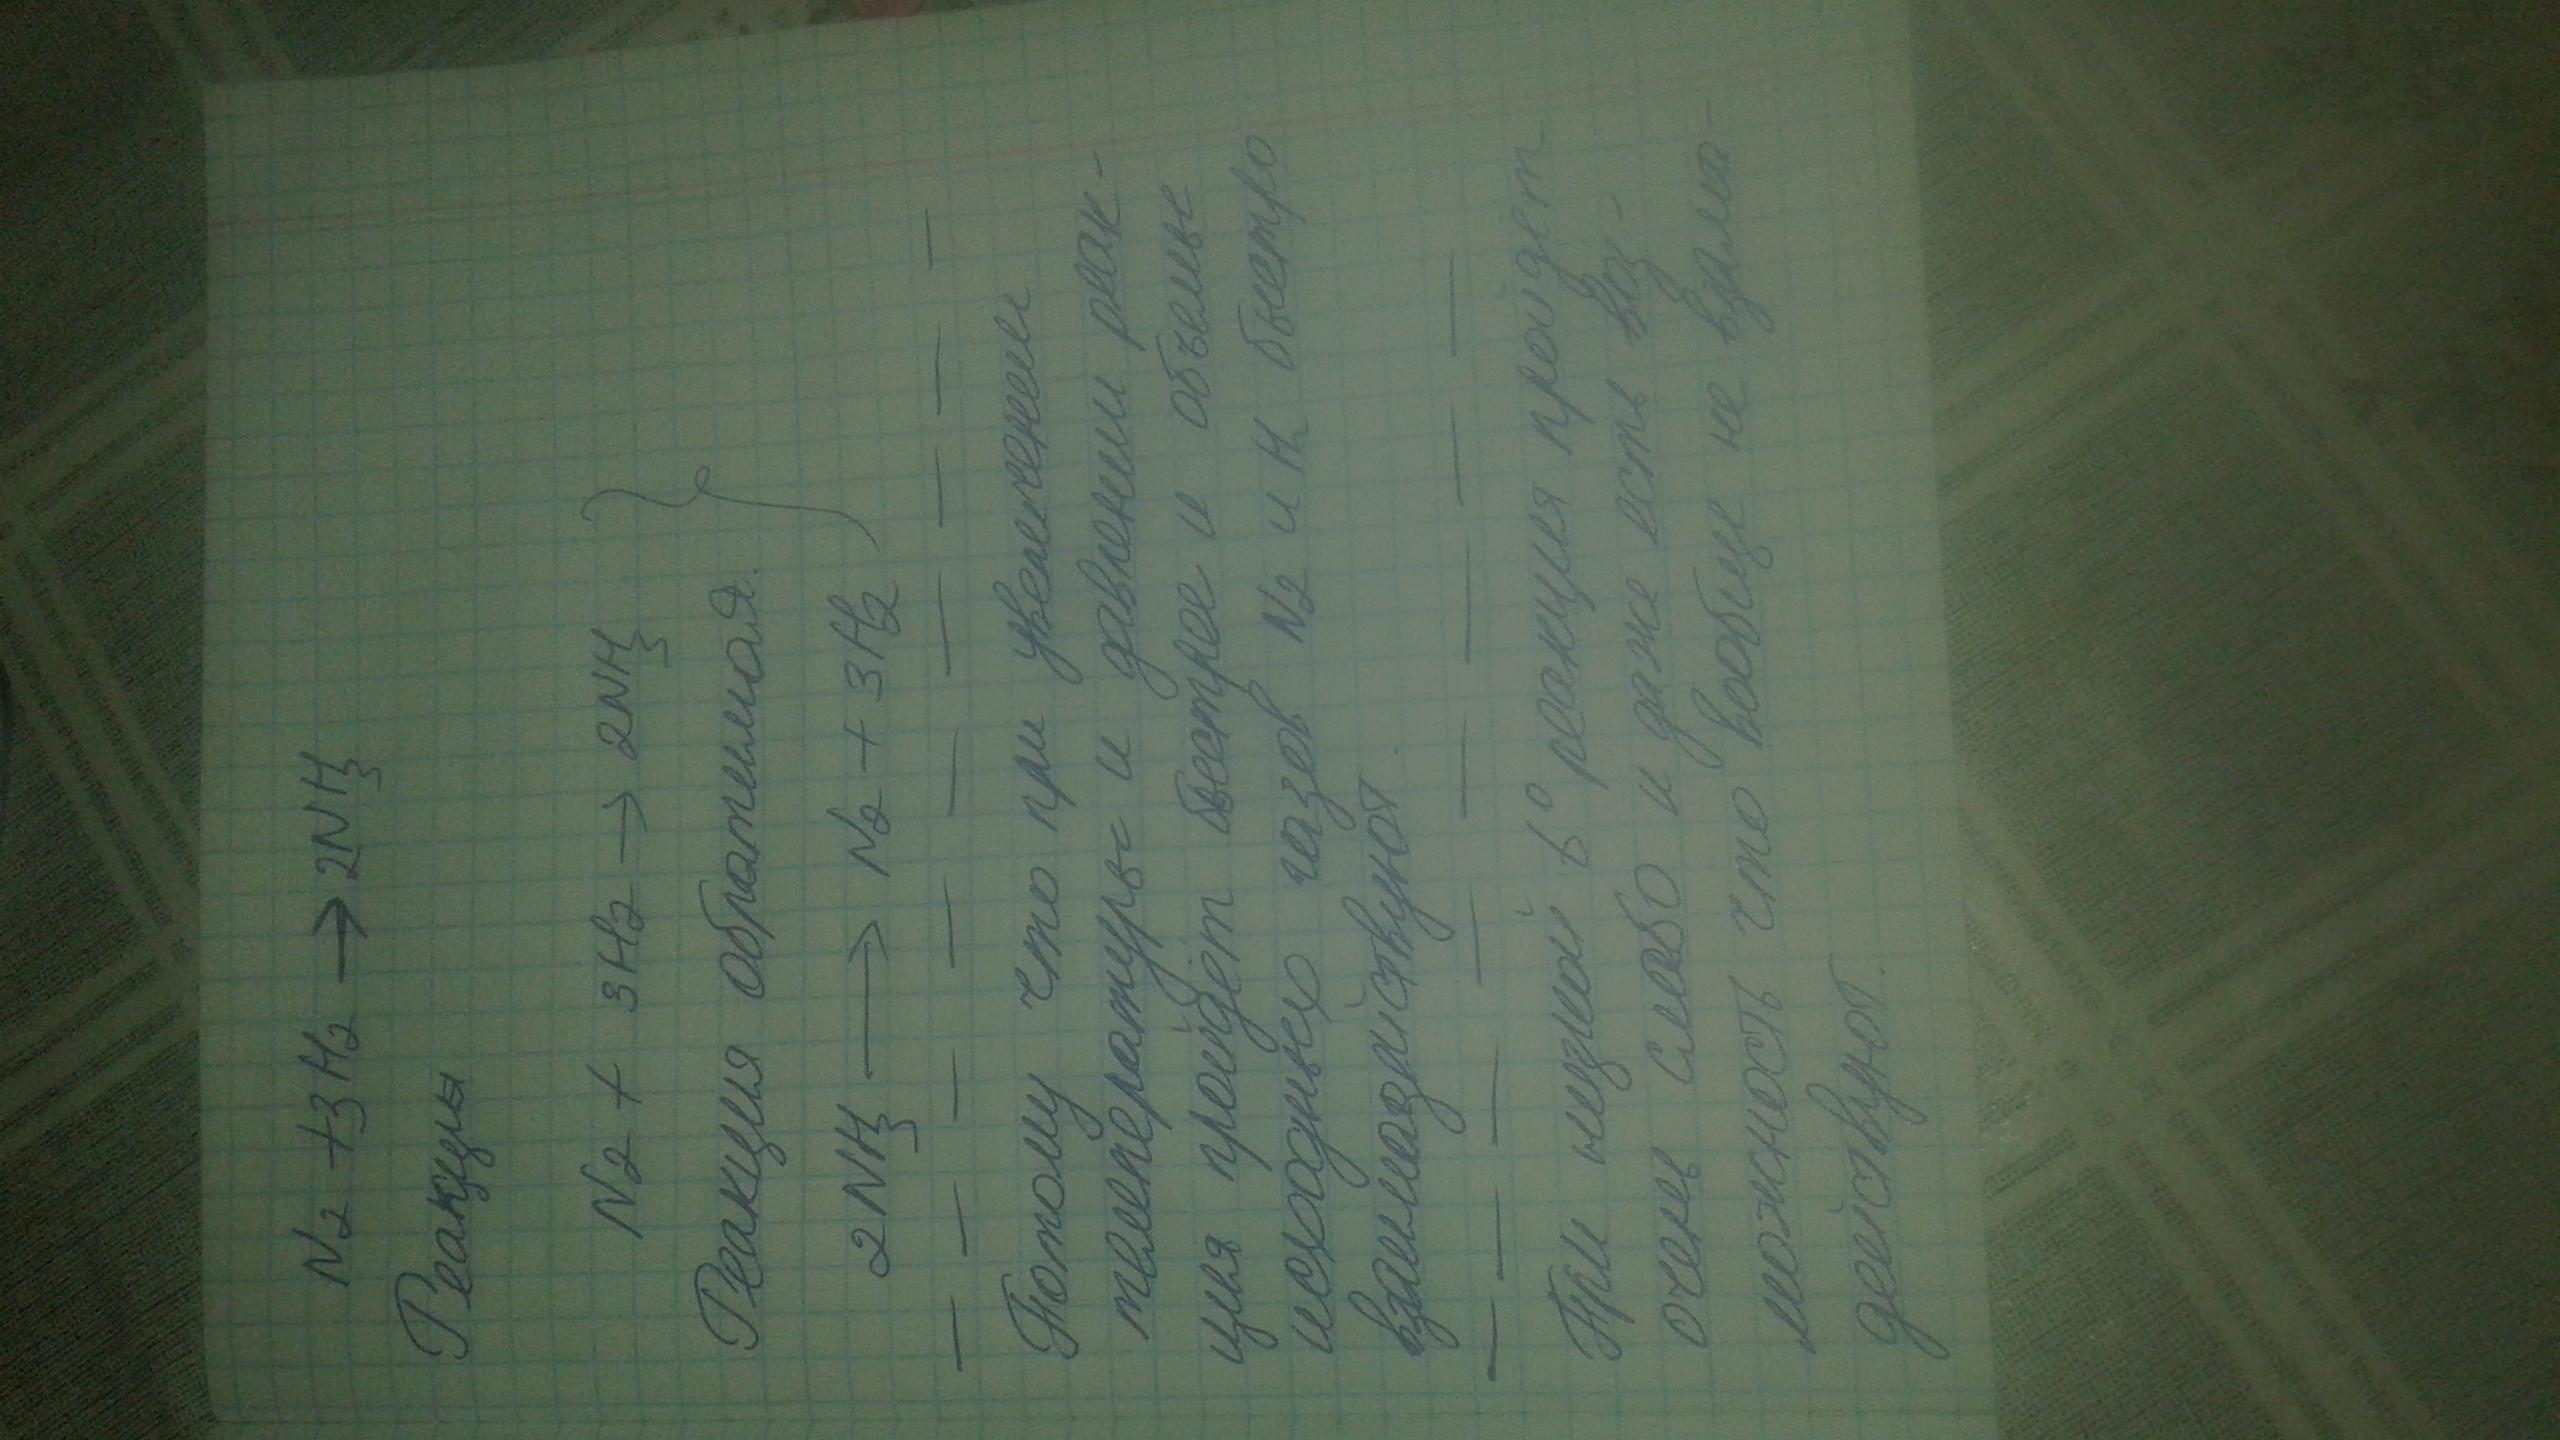 N₂ + 3H₂ → 2NH₃
Реакцыя
N₂ + 3H₂ → 2NH₃
Реакция обратимая.
2NH₃ → N₂ + 3H₂
Потому что при увеличении
температуры и давлении реак-
ция пройдёт быстрее и объемы
исходных газов N₂ и H₂ быстро
взаимодействуют.
При низкой t° реакция пройдёт
очень слабо и даже есть воз-
можность что вообще не взаимо-
действуют.